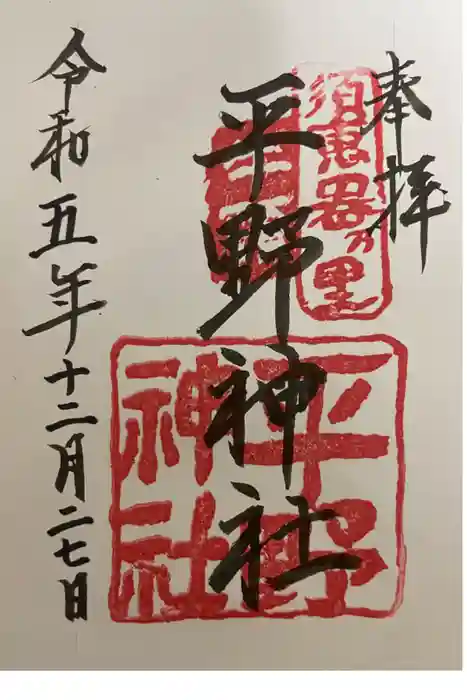 奉拝
須恵器乃里
平野神社
平野神社
令和五年十二月二七日